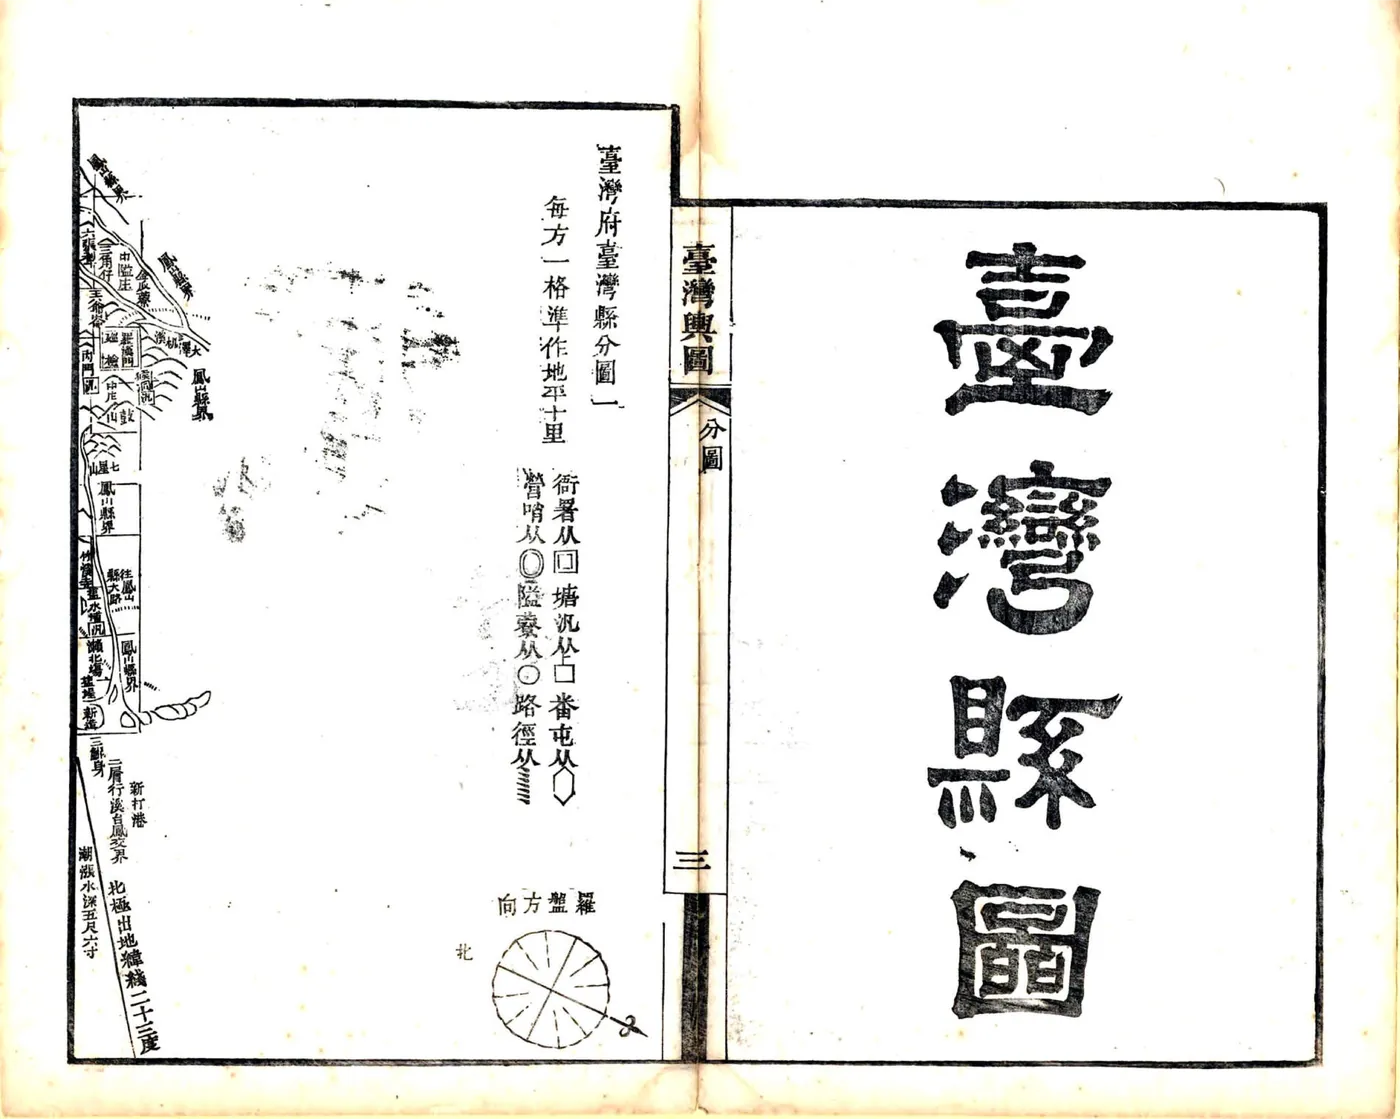 臺灣縣圖
臺灣輿圖
分圖
三
臺灣府臺灣縣分圖一
每方一格準作地平十里
衙署从 塘汛从 番屯从
營哨从 隘寮从 路徑从
羅盤方向
北
2
鳳山縣界
大澤机溪
鳳山縣界
中隘庄
三角仔
羅漢門
巡檢
內門汛
鼓山
七星山
鳳山縣界
往鳳山
縣大路
鳳山縣界
水堤汛
瀨北場
三鯤身
二層行溪台鳳交界
新打港
潮漲水深五尺六寸
北極出地緯綫二十三度